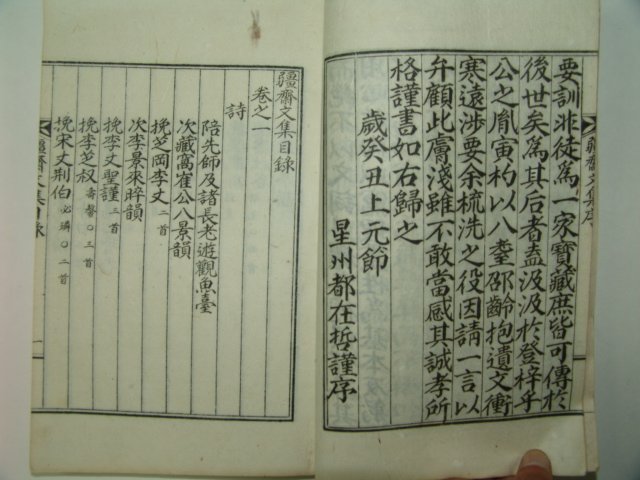 要訓非徒爲一家寶藏庶皆可傳於
後世矣爲其后者盍汲汲於登梓乎
公之胤寅杓以八耋邵齡抱遺文衝
寒遠涉要余梳洗之役因請一言以
弁顧此膚淺雖不敢當感其誠孝所
格謹書如右歸之
歲癸丑上元節
星州都在哲謹序
疆齋文集序
疆齋文集目錄
卷之一
詩
陪先師及諸長老遊觀魚臺
次藏窩崔公八景韻
挽芝岡李丈 二首
次李景來晬韻
挽李丈聖謹 三首
挽李芝叔 壽馨○三首
挽宋丈荆伯 必璘○二首
疆齋文集目錄
一